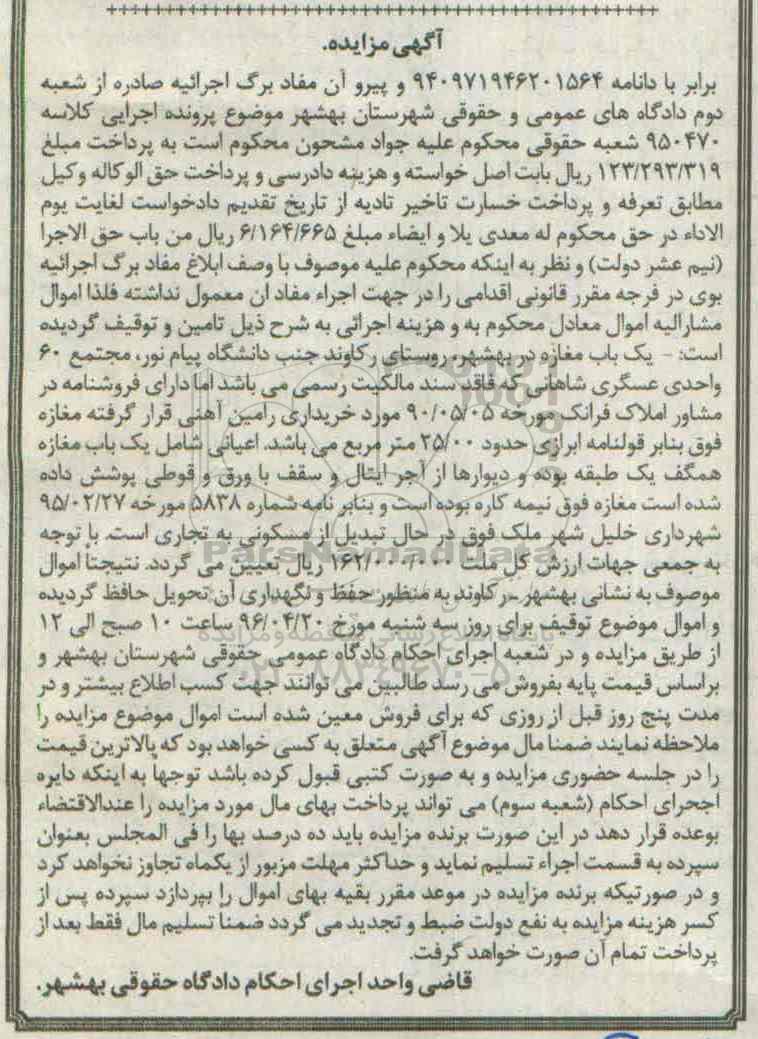 آگهی مزایده.
برابر با دانامه ۹۴۰۹۷۱۹۴۶۲۰۱۵۶۴ و پیرو آن مفاد برگ اجرائیه صادره از شعبه
دوم دادگاه های عمومی و حقوقی شهرستان بهشهر موضوع پرونده اجرایی کلاسه
۹۵۰۴۷۰ شعبه حقوقی محکوم علیه جواد مشحون محکوم است به پرداخت مبلغ
۱۲۳/۲۹۳/۳۱۹ ریال بابت اصل خواسته و هزینه دادرسی و پرداخت حق الوکاله وکیل
مطابق تعرفه و پرداخت خسارت تاخیر تادیه از تاریخ تقدیم دادخواست لغایت یوم
الاداء در حق محکوم له معدی یلا و ایضاء مبلغ ۶/۱۶۴/۶۶۵ ریال من باب حق الاجرا
(نیم عشر دولت) و نظر به اینکه محکوم علیه موصوف با وصف ابلاغ مفاد برگ اجرائیه
بوی در فرجه مقرر قانونی اقدامی را در جهت اجراء مفاد ان معمول نداشته فلذا اموال
مشارالیه اموال معادل محکوم به و هزینه اجرائی به شرح ذیل تامین و توقیف گردیده
است: - یک باب مغازه در بهشهر، روستای رکاوند جنب دانشگاه پیام نور، مجتمع ۶۰
واحدی عسگری شاهانی که فاقد سند مالکیت رسمی می باشد اما دارای فروشنامه در
مشاور املاک فرانک مورخه ۹۰/۰۵/۰۵ مورد خریداری رامین آهنی قرار گرفته مغازه
فوق بنابر قولنامه ابرازی حدود ۲۵/۰۰ متر مربع می باشد. اعیانی شامل یک باب مغازه
همگف یک طبقه بوده و دیوارها از آجر ایتال و سقف با ورق و قوطی پوشش داده
شده است مغازه فوق نیمه کاره بوده است و بنابر نامه شماره ۵۸۳۸ مورخه ۹۵/۰۲/۲۷
شهرداری خلیل شهر ملک فوق در حال تبدیل از مسکونی به تجاری است. با توجه
به جمعی جهات ارزش کل ملت ۱۶۲/۰۰۰/۰۰۰ ریال تعیین می گردد. نتیجتاً اموال
موصوف به نشانی بهشهر - رکاوند به منظور حفظ و نگهداری آن تحویل حافظ گردیده
و اموال موضوع توقیف برای روز سه شنبه مورخ ۹۶/۰۴/۲۰ ساعت ۱۰ صبح الی ۱۲
از طریق مزایده و در شعبه اجرای احکام دادگاه عمومی حقوقی شهرستان بهشهر و
براساس قیمت پایه بفروش می رسد طالبین می توانند جهت کسب اطلاع بیشتر و در
مدت پنج روز قبل از روزی که برای فروش معین شده است اموال موضوع مزایده را
ملاحظه نمایند ضمنا مال موضوع آگهی متعلق به کسی خواهد بود که بالاترین قیمت
را در جلسه حضوری مزایده و به صورت کتبی قبول کرده باشد توجها به اینکه دایره
اجحرای احکام (شعبه سوم) می تواند پرداخت بهای مال مورد مزایده را عندالاقتضاء
بوعده قرار دهد در این صورت برنده مزایده باید ده درصد بها را فی المجلس بعنوان
سپرده به قسمت اجراء تسلیم نماید و حداکثر مهلت مزبور از یکماه تجاوز نخواهد کرد
و در صورتیکه برنده مزایده در موعد مقرر بقیه بهای اموال را بپردازد سپرده پس از
کسر هزینه مزایده به نفع دولت ضبط و تجدید می گردد ضمنا تسلیم مال فقط بعد از
پرداخت تمام آن صورت خواهد گرفت.
قاضی واحد اجرای احکام دادگاه حقوقی بهشهر.
ParsNamadData